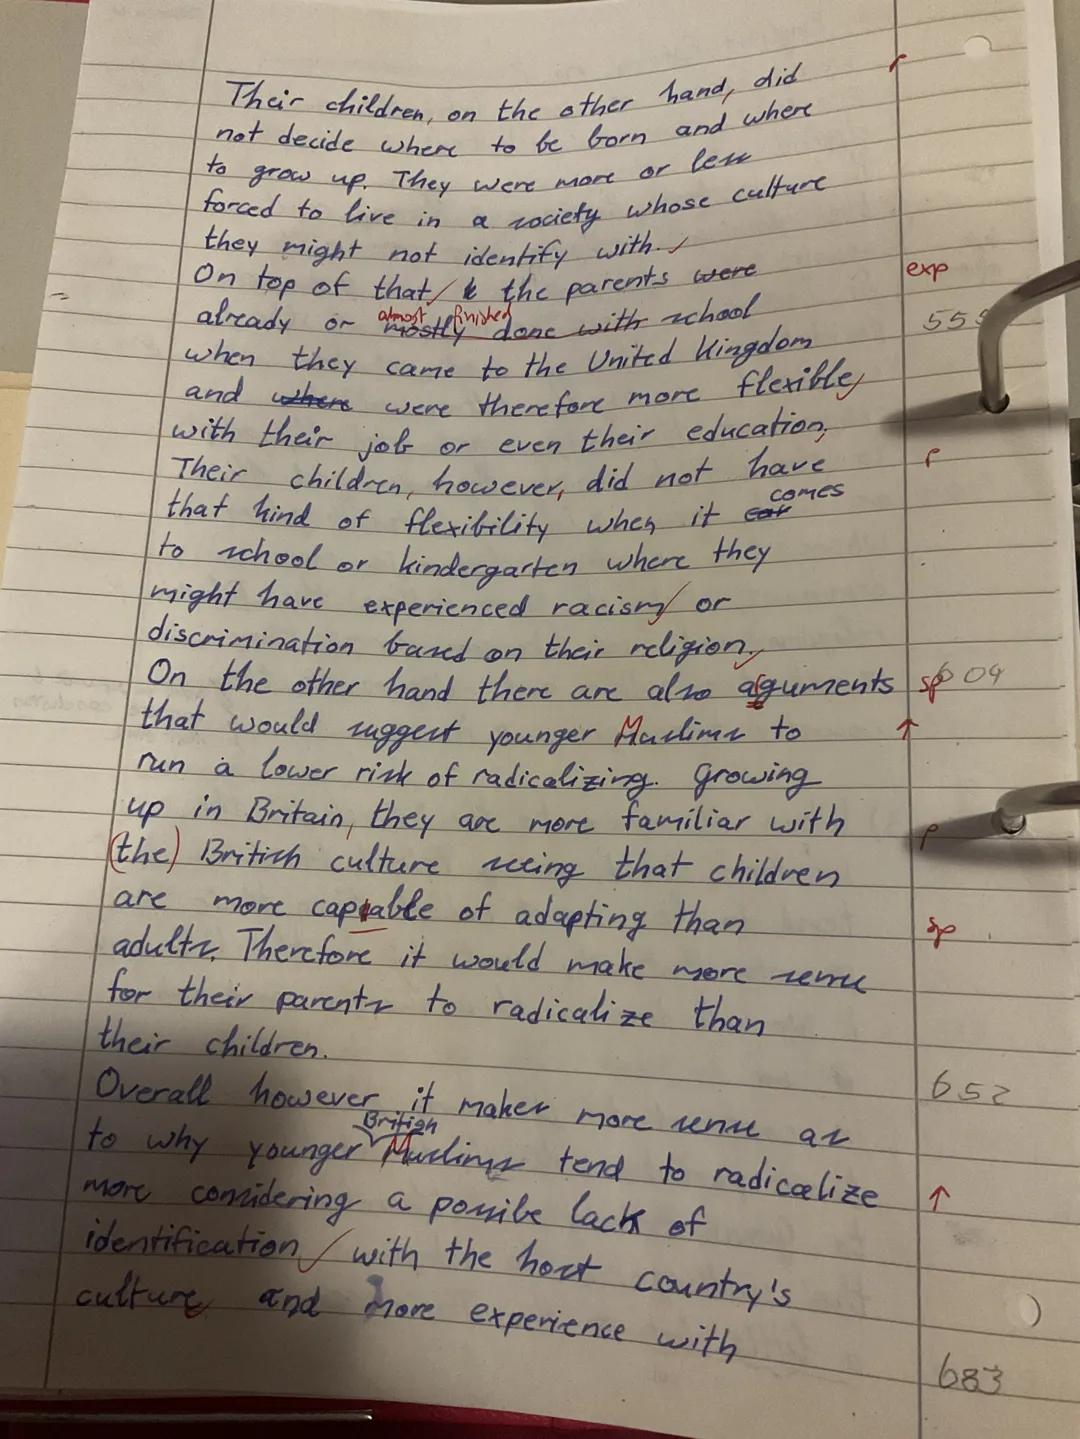 Their children, on the other hand, did
not decide where to be born and where
to grow up. They were more or less
forced to live in a society whose culture
they might not identify with.
On top of that the parents were
exp
almost finished
already or mostly done with school
when they came to the United Kingdom
and where were therefore more flexible
with their job or even their education,
Their children, however, did not have
r
comes
that kind of flexibility when it
to school or kindergarten where they
might have experienced racism or
discrimination based on their religion.
On the other hand there are also aguments
sp 604
that would suggest younger Muslims to
↑
run a lower risk of radicalizing. Growing
up in Britain, they are more familiar with
(the) British culture seeing that children
are more capable of adapting than
sp
adults. Therefore it would make more sense
for their parents to radicalize than
their children.
Overall however it makes more sense as
652
British
to why younger Muslims tend to radicalize
↑
more considering a possibe lack of
identification with the host country's
culture and more experience with
683